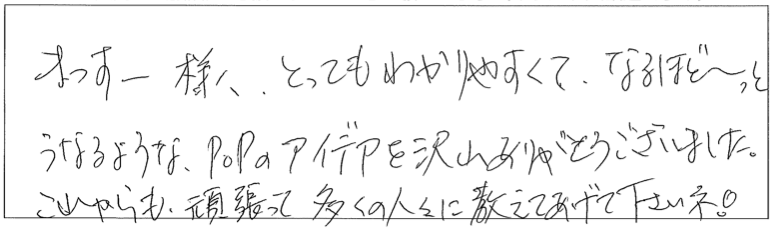 まっすー様へ、とってもわかりやすくて、なるほど〜っと
うなるような、POPのアイデアを沢山ありがとうございました。
これからも、頑張って多くの人々に教えてあげて下さいネ!